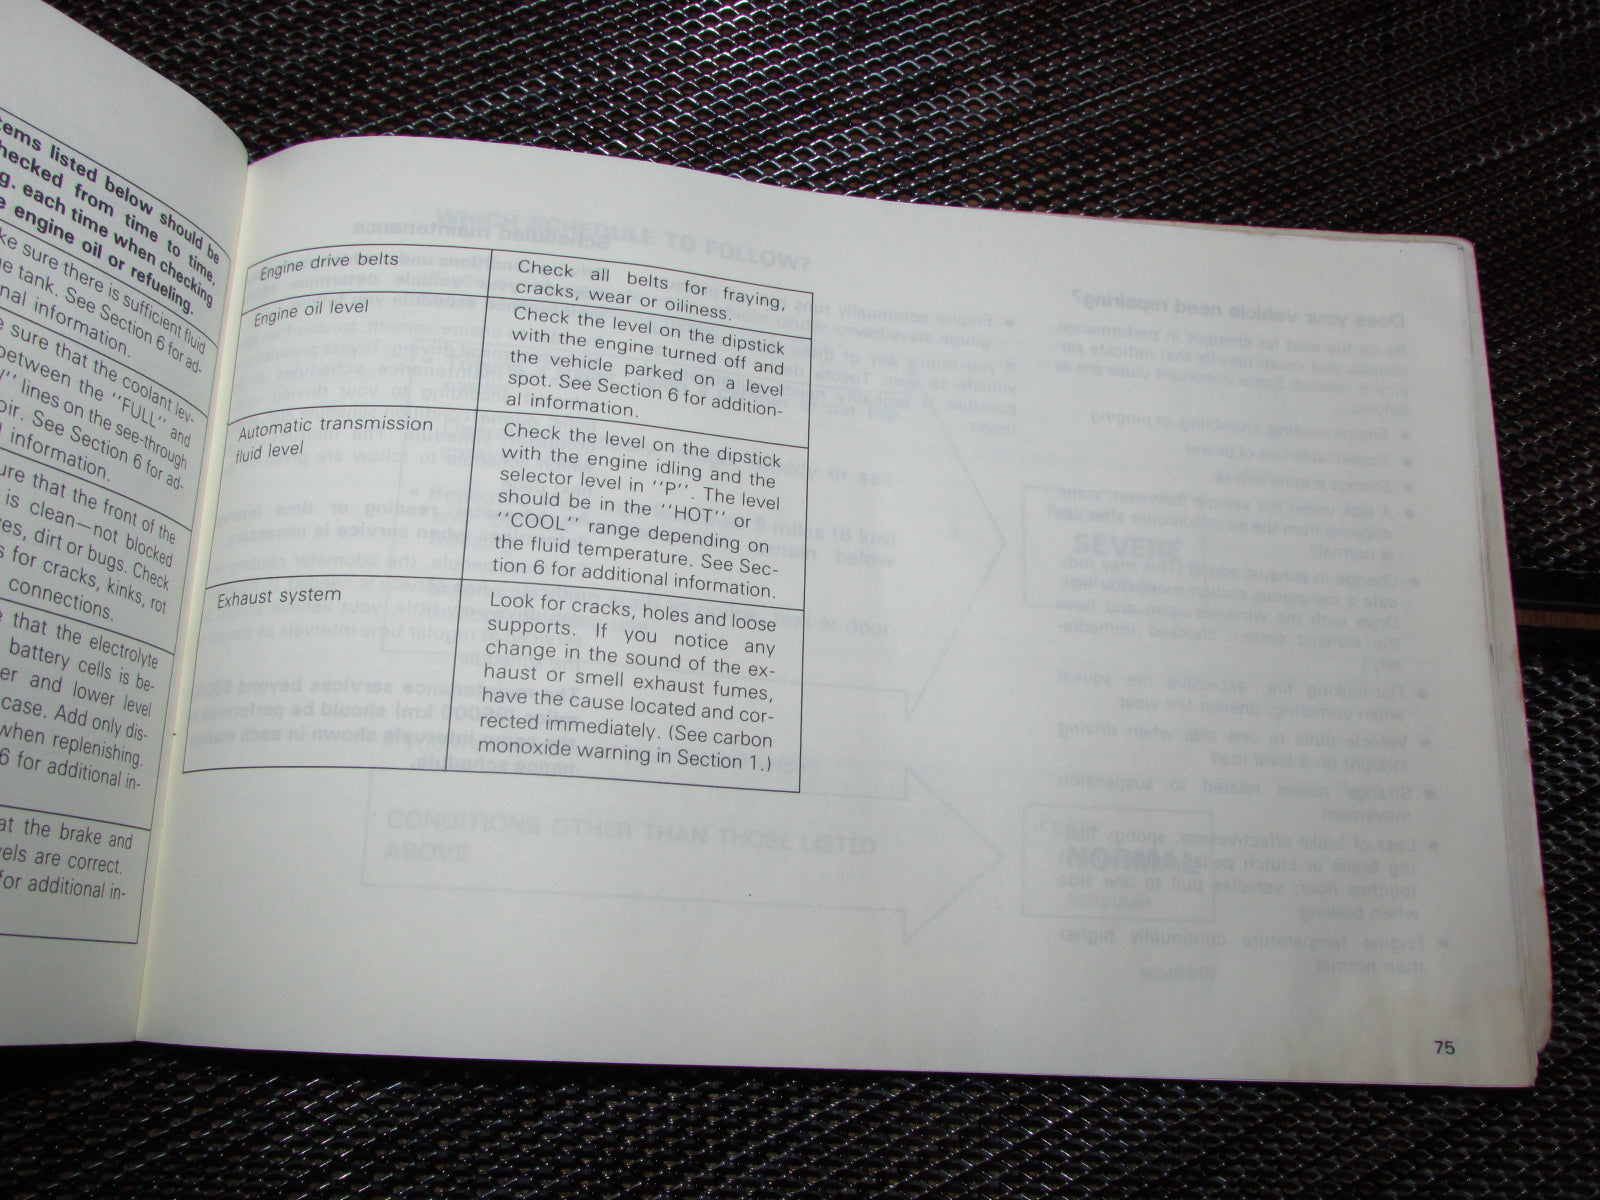 tems listed below should be
hecked from time to time,
g. each time when checking
e engine oil or refueling.
ke sure there is sufficient fluid
e tank. See Section 6 for ad-
nal information.
e sure that the coolant lev-
between the "FULL" and
" lines on the see-through
oir. See Section 6 for ad-
l information.
ure that the front of the
is clean—not blocked
es, dirt or bugs. Check
s for cracks, kinks, rot
connections.
e that the electrolyte
battery cells is be-
er and lower level
case. Add only dis-
when replenishing.
6 for additional in-
at the brake and
vels are correct.
for additional in-
Engine drive belts
Check all belts for fraying,
cracks, wear or oiliness.
Engine oil level
Check the level on the dipstick
with the engine turned off and
the vehicle parked on a level
spot. See Section 6 for addition-
al information.
Automatic transmission
fluid level
Check the level on the dipstick
with the engine idling and the
selector level in "P". The level
should be in the "HOT" or
"COOL" range depending on
the fluid temperature. See Sec-
tion 6 for additional information.
Exhaust system
Look for cracks, holes and loose
supports. If you notice any
change in the sound of the ex-
haust or smell exhaust fumes,
have the cause located and cor-
rected immediately. (See carbon
monoxide warning in Section 1.)
WHICH SCHEDULE TO FOLLOW?
SEVERE
CONDITIONS OTHER THAN THOSE LISTED
ABOVE
NORMAL
75